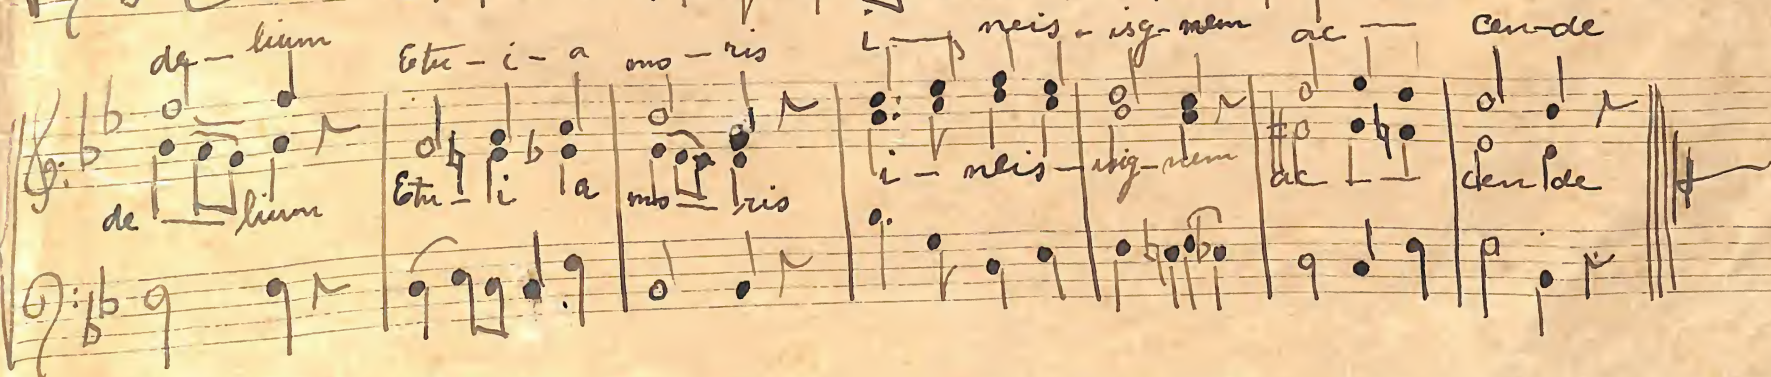 de - lium Etu - i - a mo - ris i - neis - isg - nem ac - cen - de
de - lium Etu - i a mo - ris i - neis - isig - nem ac - - cen de